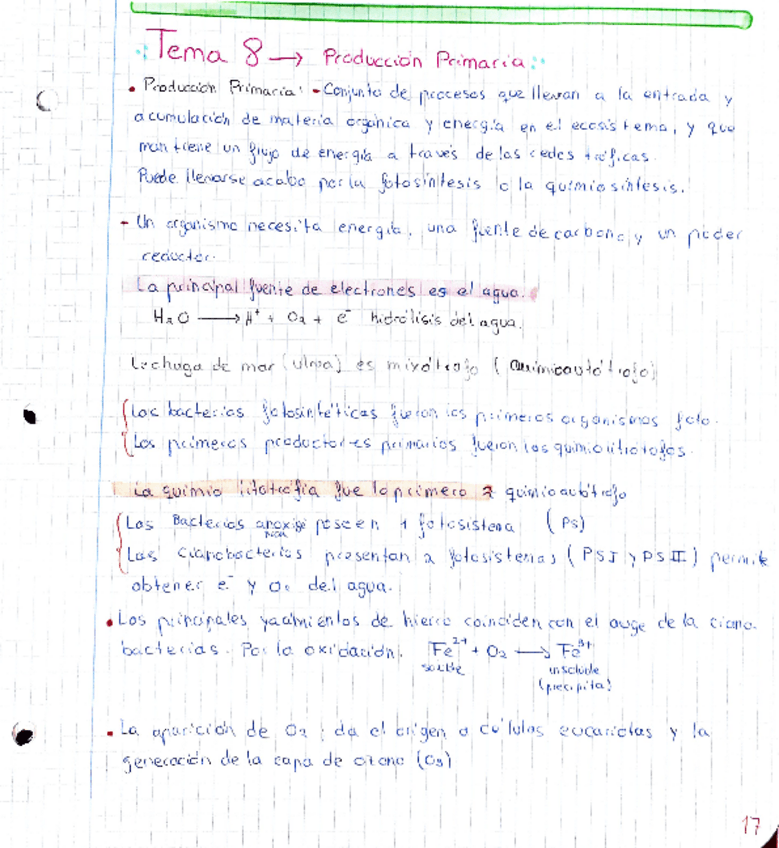 Tema 8 → Producción Primaria:
• Producción Primaria: - Conjunto de procesos que llevan a la entrada y
acumulación de materia orgánica y energía en el ecosistema, y que
mantiene un flujo de energía a través de las redes tróficas.
Puede llevarse acabo por la fotosíntesis o la quimiosíntesis.
- Un organismo necesita energía, una fuente de carbono, y un poder
reductor.
La principal fuente de electrones es el agua.
H₂O → H⁺ + O₂ + e⁻ Hidrólisis del agua.
Lechuga de mar (ulva) es mixótrofo (Quimioautótrofo)
Las bacterias fotosintéticas fueron los primeros organismos foto.
Los primeros productores primarios fueron los quimiolitotrofos.
La quimio litotrofia fue lo primero quimioautótrofo
Las Bacterias anoxigénicas poseen 1 fotosistema (PS)
Las cianobacterias presentan 2 fotosistemas (PSI y PSII) permite
obtener e⁻ y O₂ del agua.
• Los principales yacimientos de hierro coinciden con el auge de la ciano-
bacterias. Por la oxidación. Fe²⁺ + O₂ → Fe³⁺
soluble insoluble
(precipita)
• La aparición de O₂; da el origen a células eucariotas y la
generación de la capa de ozono (O₃)
17